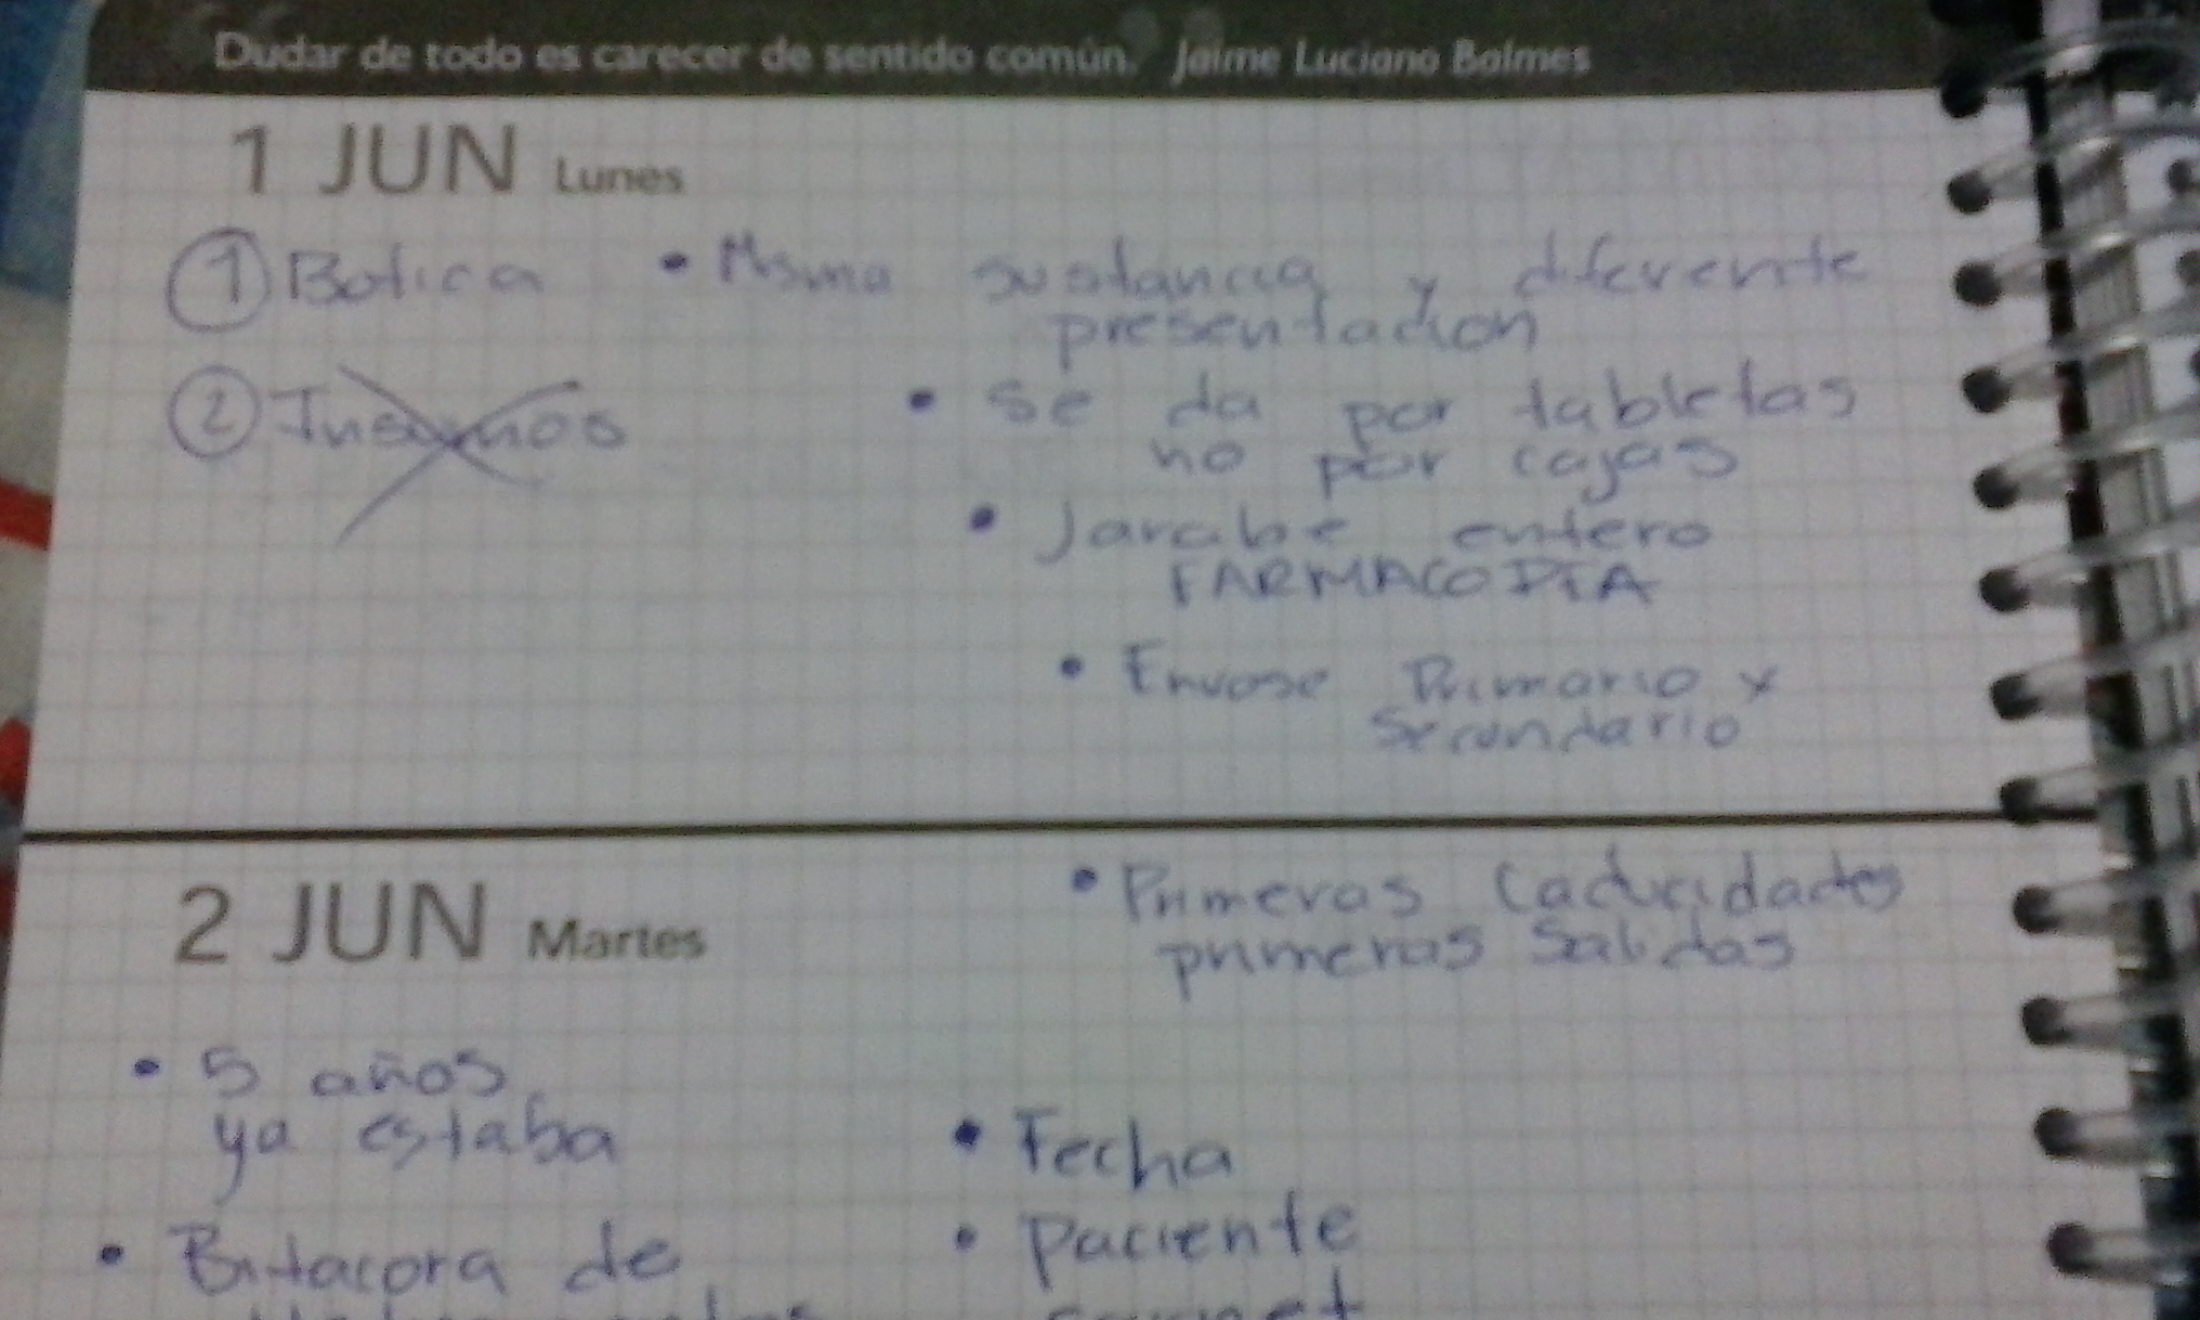 Dudar de todo es carecer de sentido común. Jaime Luciano Balmes
1 JUN Lunes
① Botica
• Misma sustancia y diferente
presentacion
② Insumos
• Se da por tabletas
no por cajas
• Jarabe entero
FARMACOPIA
• Envase Primario y
Secundario
2 JUN Martes
• Primeras Caducidades
primeras Salidas
• 5 años
ya estaba
• Bitacora de
• Fecha
• Paciente